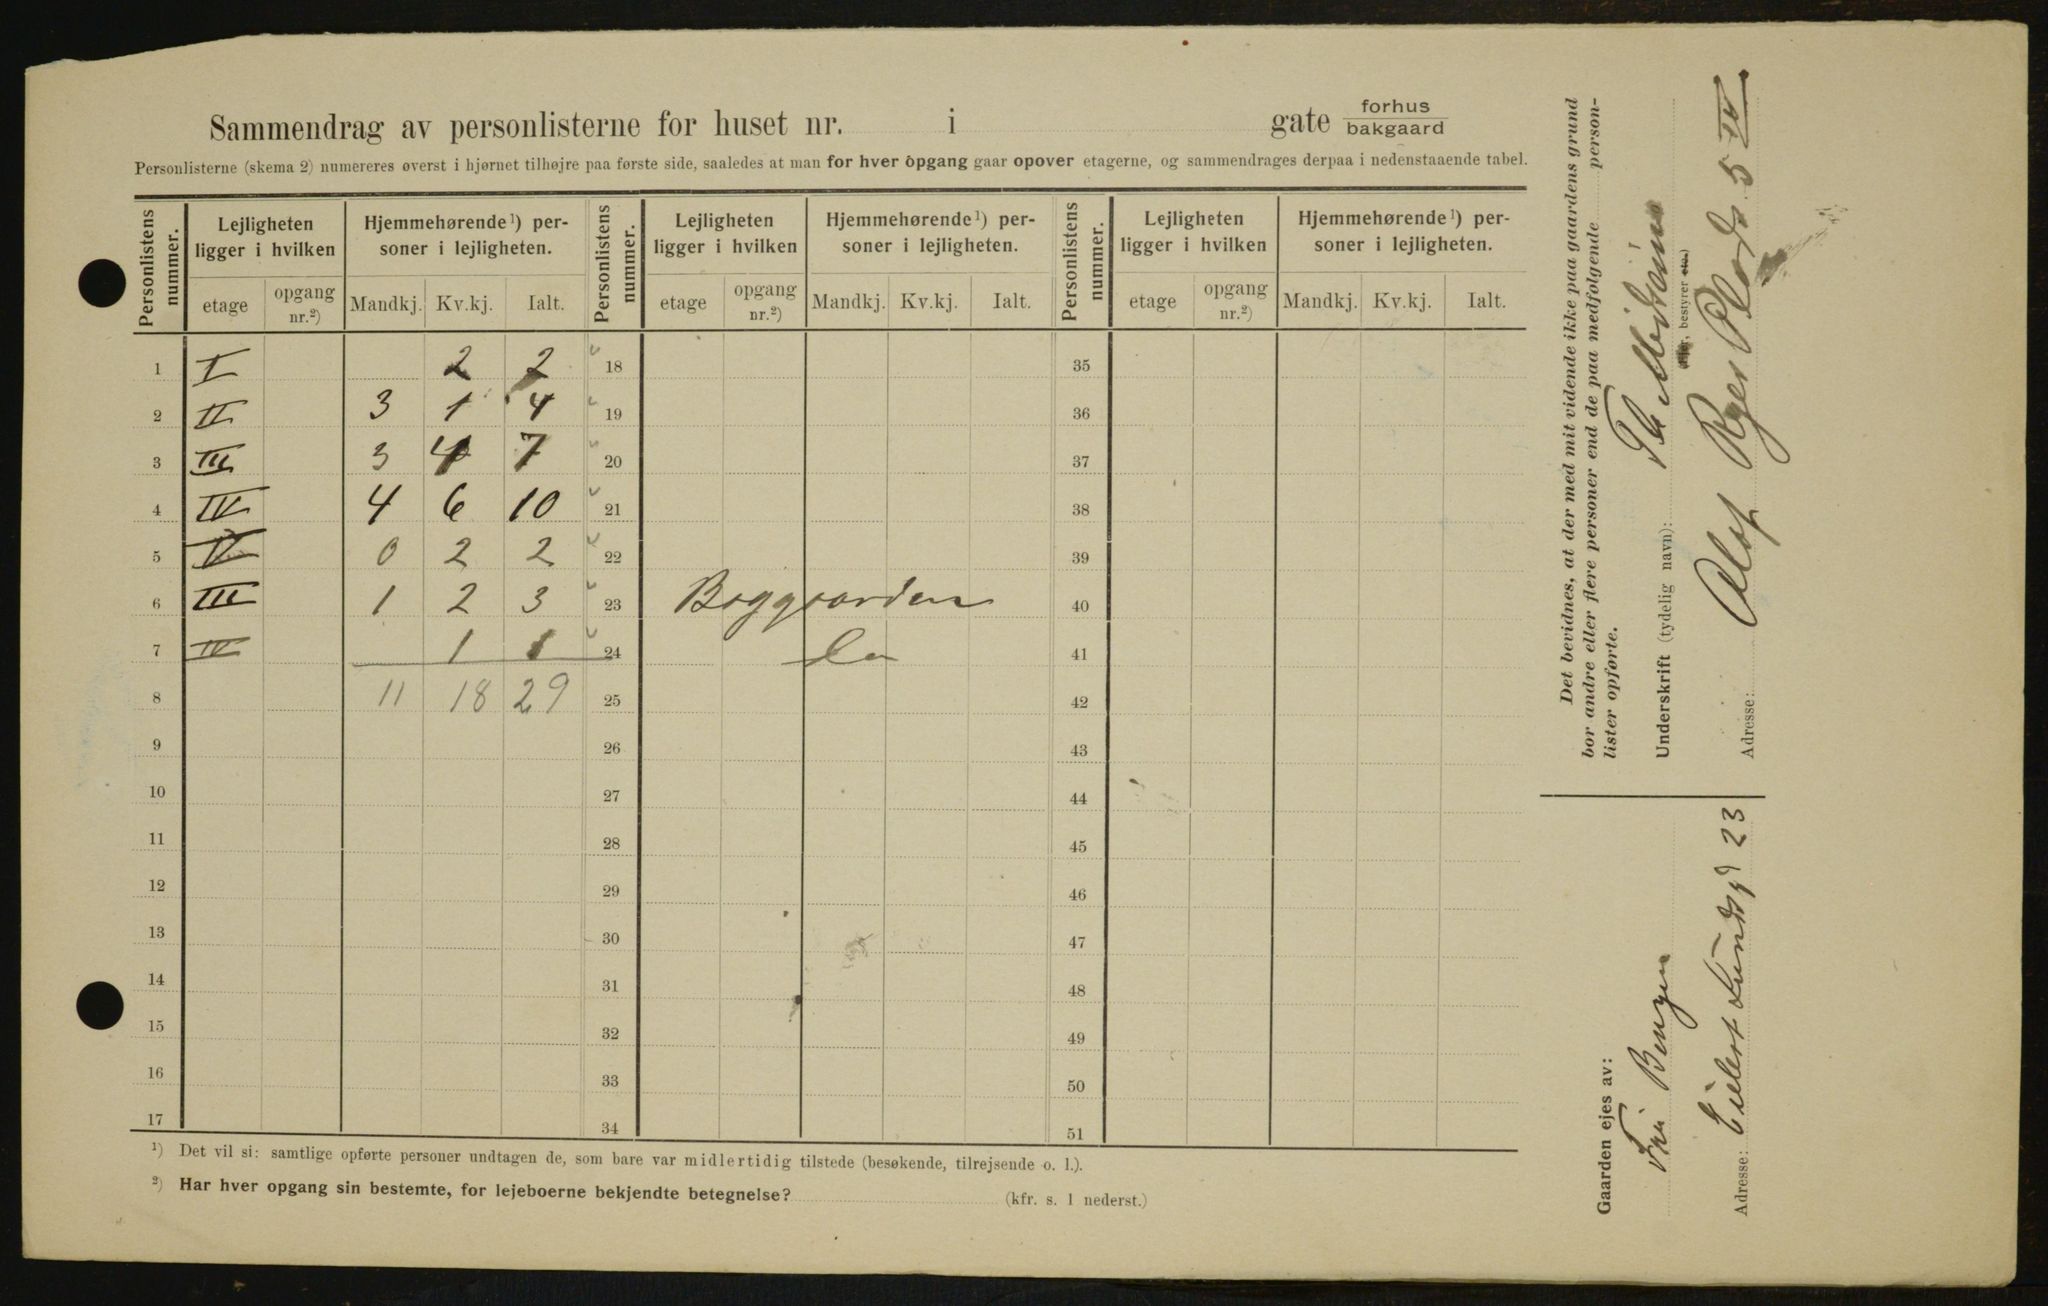 Sammendrag av personlisterne for huset nr. i gate forhus bakgaard
Personlisterne (skema 2) numereres øverst i hjørnet tilhøjre paa første side, saaledes at man for hver opgang gaar opover etagerne, og sammendrages derpaa i nedenstaaende tabel.
Personlistens nummer. Lejligheten ligger i hvilken Hjemmehørende¹) personer i lejligheten. Personlistens nummer. Lejligheten ligger i hvilken Hjemmehørende¹) personer i lejligheten. Personlistens nummer. Lejligheten ligger i hvilken Hjemmehørende¹) personer i lejligheten.
etage opgang nr.²) Mandkj. Kv.kj. Ialt. etage opgang nr.²) Mandkj. Kv.kj. Ialt. etage opgang nr.²) Mandkj. Kv.kj. Ialt.
1 I 2 2 18 35
2 II 3 1 4 19 36
3 III 3 4 7 20 37
4 IV 4 6 10 21 38
5 V 0 2 2 22 39
6 III 1 2 3 23 Baggaarden 40
7 IV 1 1 24 Do 41
8 11 18 29 25 42
9 26 43
10 27 44
11 28 45
12 29 46
13 30 47
14 31 48
15 32 49
16 33 50
17 34 51
¹) Det vil si: samtlige opførte personer undtagen de, som bare var midlertidig tilstede (besøkende, tilrejsende o. l.).
²) Har hver opgang sin bestemte, for lejeboerne bekjendte betegnelse? (kfr. s. 1 nederst.)
Det bevidnes, at der med mit vidende ikke paa gaardens grund
bor andre eller flere personer end de paa medfølgende person-
lister opførte.
Underskrift (tydelig navn):
bestyrer etc.)
Adresse: Olaf Ryes Plads 5 IV
Gaarden ejes av:
Adresse: Eilert Sundsgd 23